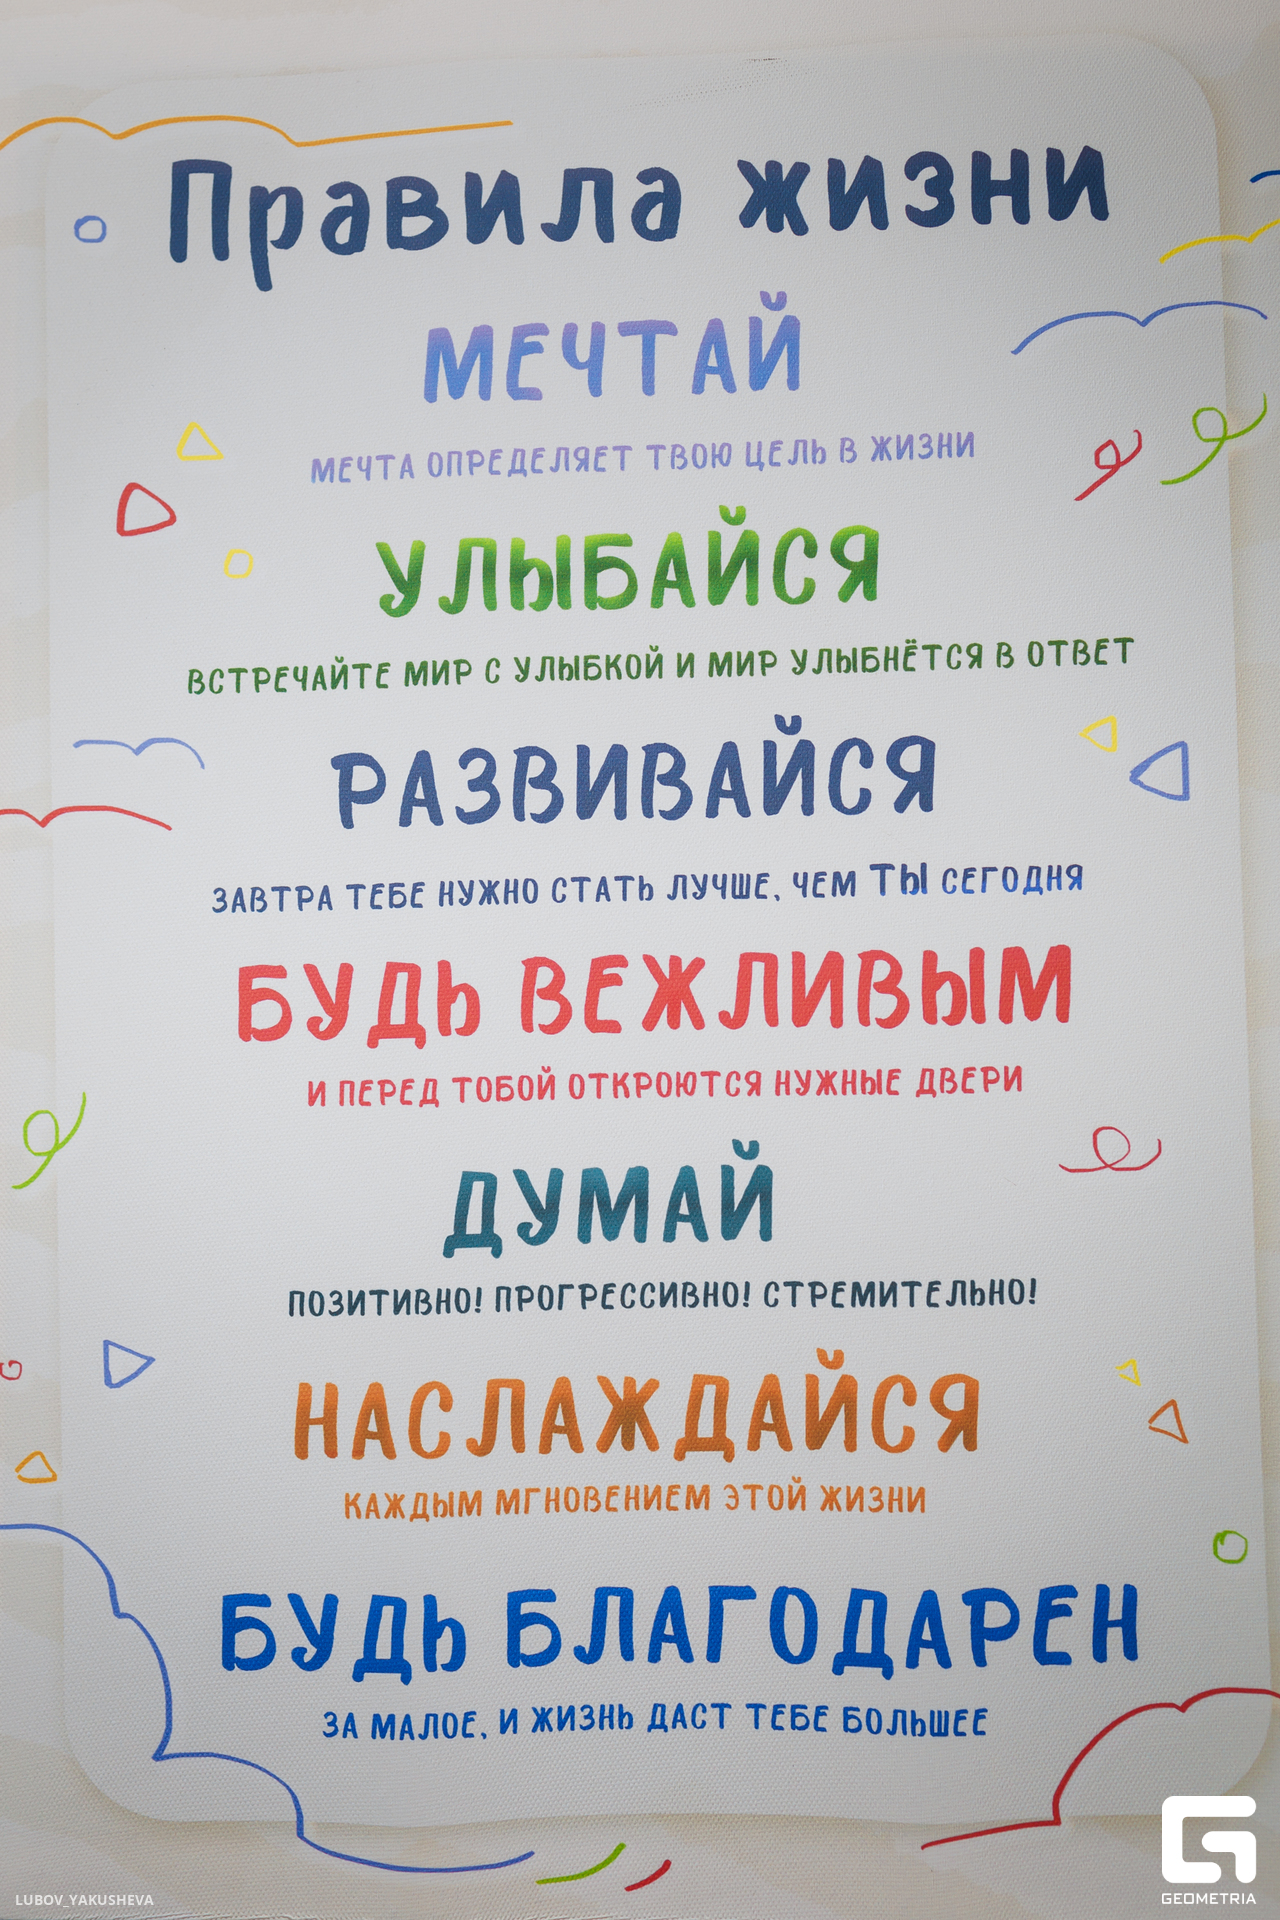 Правила жизни
МЕЧТАЙ
МЕЧТА ОПРЕДЕЛЯЕТ ТВОЮ ЦЕЛЬ В ЖИЗНИ
УЛЫБАЙСЯ
ВСТРЕЧАЙТЕ МИР С УЛЫБКОЙ И МИР УЛЫБНЁТСЯ В ОТВЕТ
РАЗВИВАЙСЯ
ЗАВТРА ТЕБЕ НУЖНО СТАТЬ ЛУЧШЕ, ЧЕМ ТЫ СЕГОДНЯ
БУДЬ ВЕЖЛИВЫМ
И ПЕРЕД ТОБОЙ ОТКРОЮТСЯ НУЖНЫЕ ДВЕРИ
ДУМАЙ
ПОЗИТИВНО! ПРОГРЕССИВНО! СТРЕМИТЕЛЬНО!
НАСЛАЖДАЙСЯ
КАЖДЫМ МГНОВЕНИЕМ ЭТОЙ ЖИЗНИ
БУДЬ БЛАГОДАРЕН
ЗА МАЛОЕ, И ЖИЗНЬ ДАСТ ТЕБЕ БОЛЬШЕЕ
LUBOV_YAKUSHEVA
GEOMETRIA